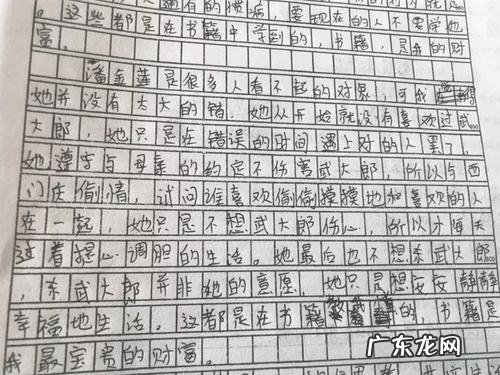 。这些都是在书籍中学到的，书籍，灵魂的财
富。
潘金莲是很多人看不起的对象，可我觉得
她并没有太大的错，她从开始就没有喜欢过武
大郎，她只是在错误的时间遇上对的人罢了，
她遵守与母亲的约定不伤害武大郎，所以与西
门庆偷情，试问谁喜欢偷偷摸摸地和喜欢的人
在一起，她只是不想武大郎伤心，所以才每天
过着提心调胆的生活。她最后也不想杀武大郎
，杀武大郎并非她的意愿，她只是想安安静静
幸福地生活。这都是在书籍的，书籍是
我最宝贵的财富。
广东龙网